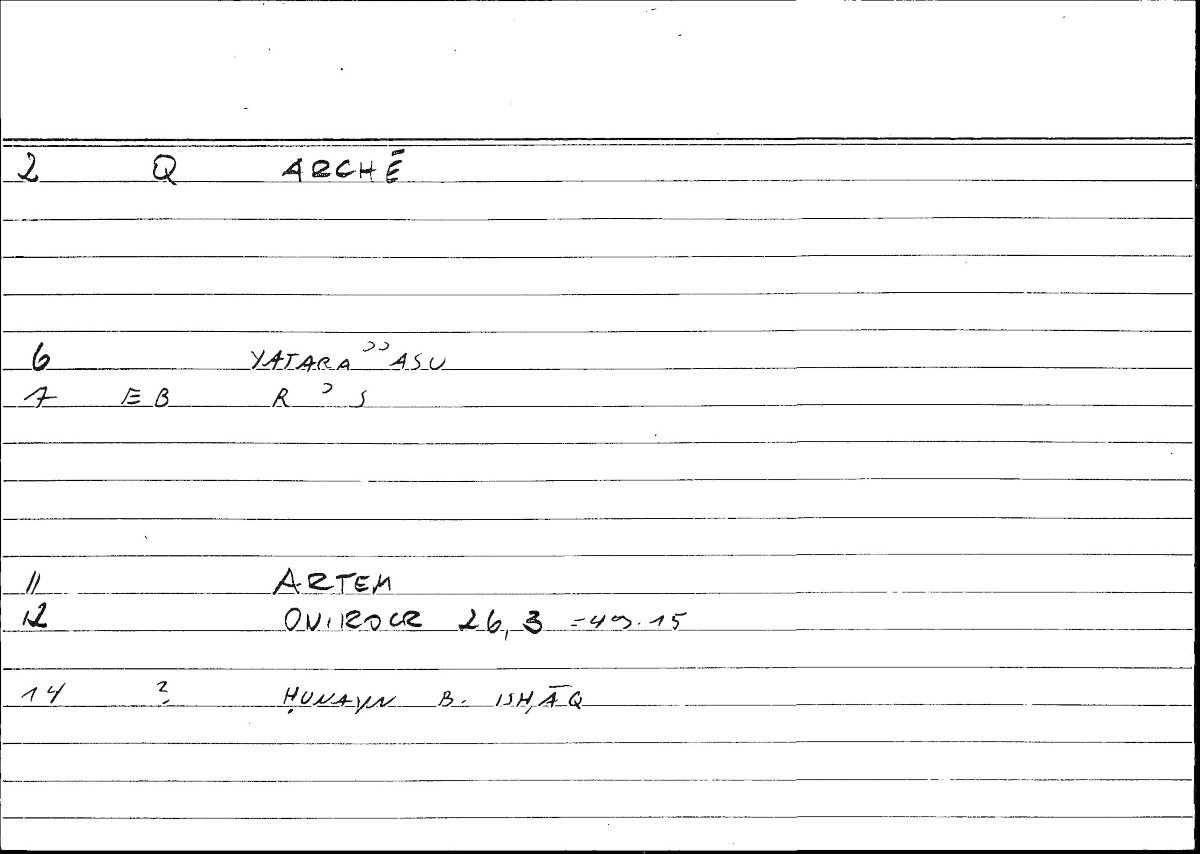 2 Q ARCHĒ
6 YATARAʾʾASU
7 EB R ʾ S
11 ARTEM
12 ONIROCR 26,3 =49.15
14 ? ḤUNAYN B. ISḤĀQ